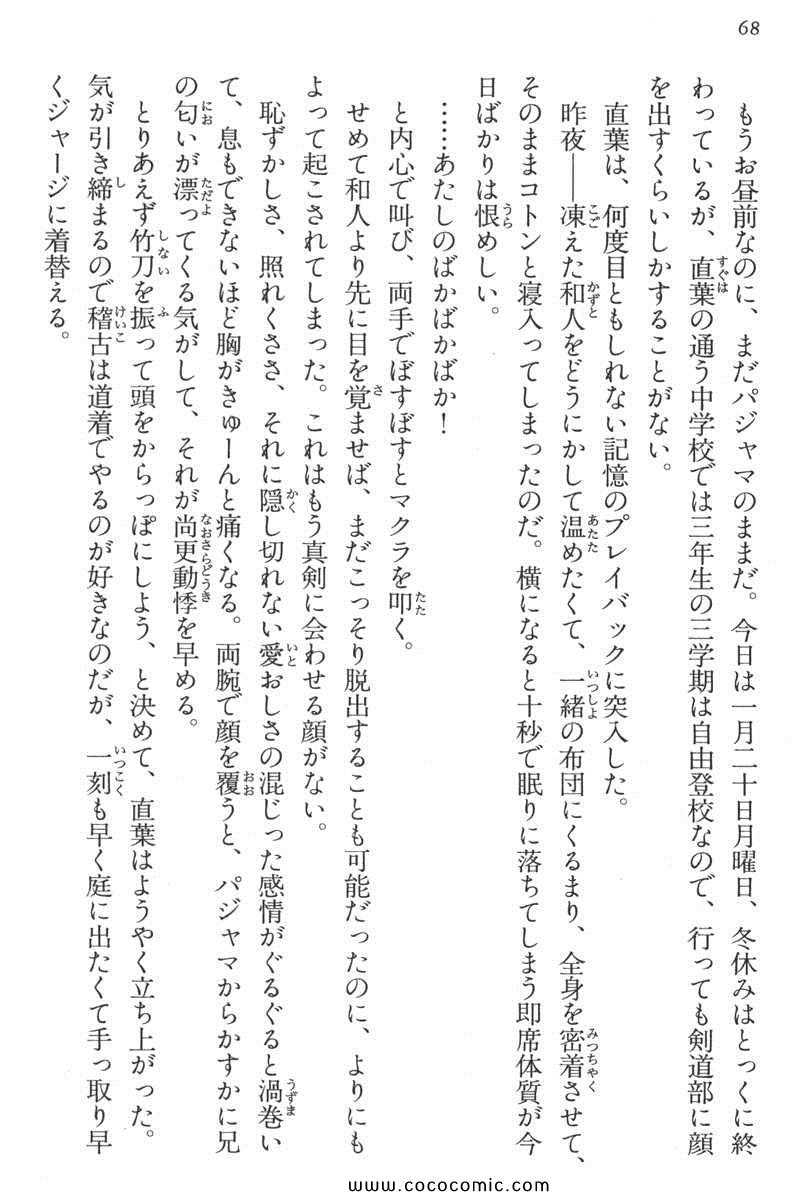 68
もうお昼前なのに、まだパジャマのままだ。今日は一月二十日月曜日、冬休みはとっくに終
わっているが、直葉の通う中学校では三年生の三学期は自由登校なので、行っても剣道部に顔
を出すくらいしかすることがない。
直葉は、何度目ともしれない記憶のプレイバックに突入した。
昨夜――凍えた和人をどうにかして温めたくて、一緒の布団にくるまり、全身を密着させて、
そのままコトンと寝入ってしまったのだ。横になると十秒で眠りに落ちてしまう即席体質が今
日ばかりは恨めしい。
……あたしのばかばかばか！
と内心で叫び、両手でぼすぼすとマクラを叩く。
せめて和人より先に目を覚ませば、まだこっそり脱出することも可能だったのに、よりにも
よって起こされてしまった。これはもう真剣に会わせる顔がない。
恥ずかしさ、照れくささ、それに隠し切れない愛おしさの混じった感情がぐるぐると渦巻い
て、息もできないほど胸がきゅーんと痛くなる。両腕で顔を覆うと、パジャマからかすかに兄
の匂いが漂ってくる気がして、それが尚更動悸を早める。
とりあえず竹刀を振って頭をからっぽにしよう、と決めて、直葉はようやく立ち上がった。
気が引き締まるので稽古は道着でやるのが好きなのだが、一刻も早く庭に出たくて手っ取り早
くジャージに着替える。
www.cococomic.com/